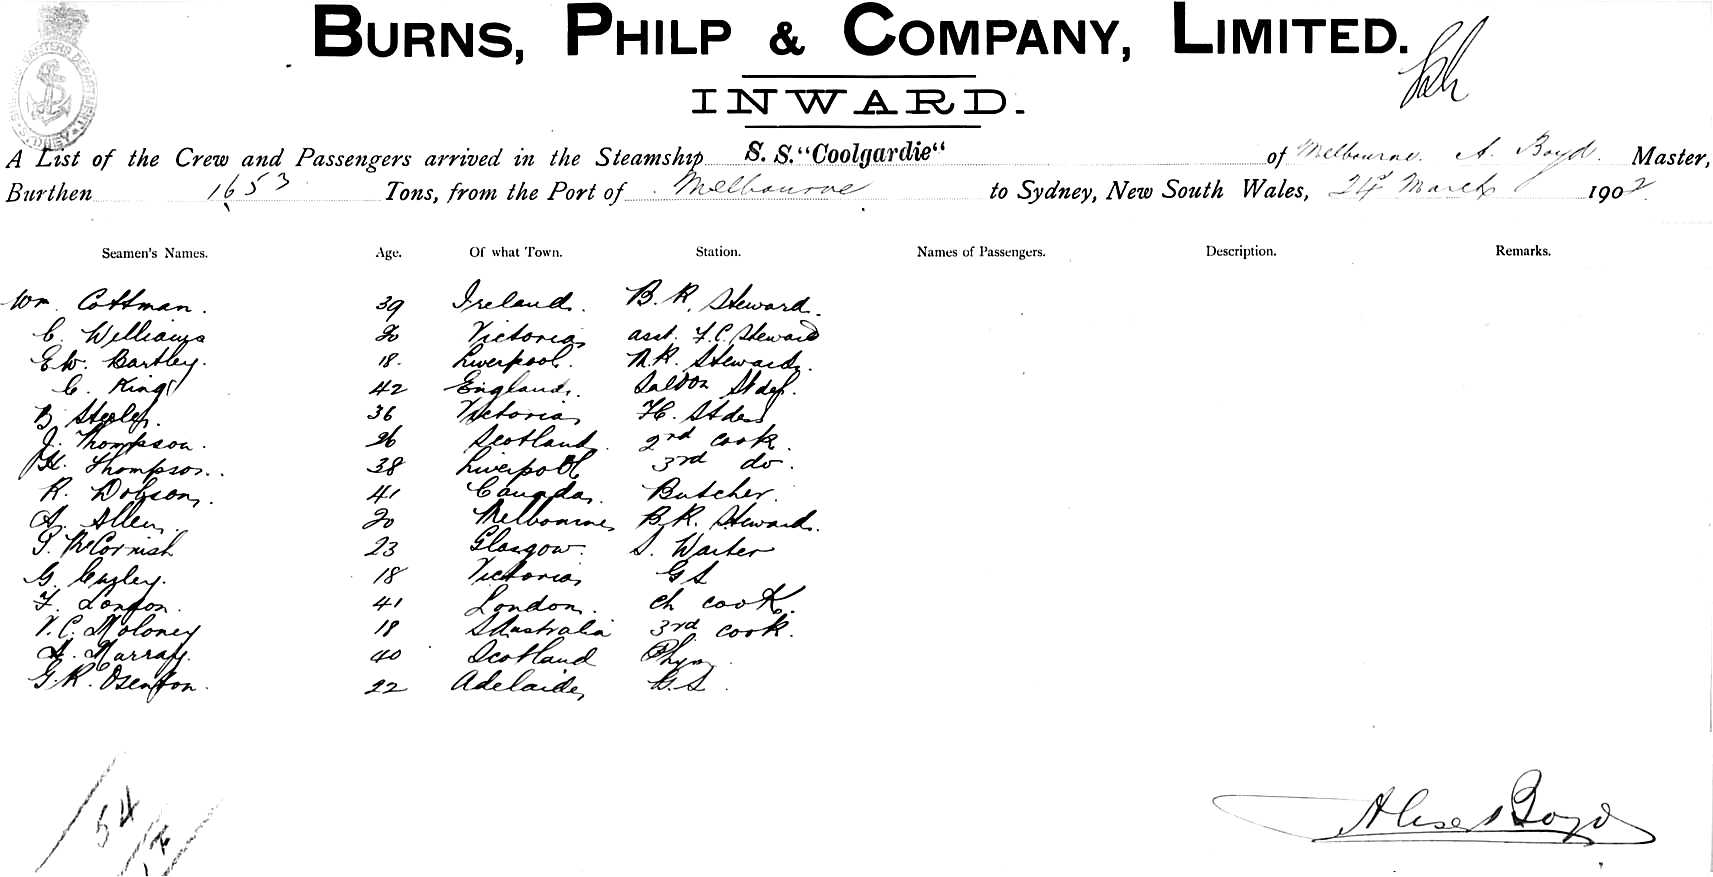 BURNS, PHILP & COMPANY, LIMITED.
INWARD.
A List of the Crew and Passengers arrived in the Steamship S. S. "Coolgardie" of Melbourne. A. Boyd. Master,
Burthen 1653 Tons, from the Port of Melbourne to Sydney, New South Wales, 24th March 1902
Seamen's Names. Age. Of what Town. Station. Names of Passengers. Description. Remarks.
Wm. Cottman. 39 Ireland. B. R. Steward.
C. Williams 20 Victoria asst. F.C. Steward
E.W. Bartley. 18. Liverpool. M.R. Steward.
C. King 42 England. Saloon Stdes.
B. Steeles. 36 Victoria F.C. Stdess
J. Thompson. 26 Scotland. 2nd cook.
H. Thompson. 38 Liverpool 3rd do.
R. Dobson. 41 Canada. Butcher.
A. Allen. 20 Melbourne B.R. Steward.
S. McCornish 23 Glasgow. S. Waiter
G. 18 Victoria G S
F. London. 41 London. Ch cook.
V.C. Moloney 18 S Australia 3rd cook.
A. Murray. 40 Scotland
G.R. Osenton. 22 Adelaide G.S.
54
Alex Boyd